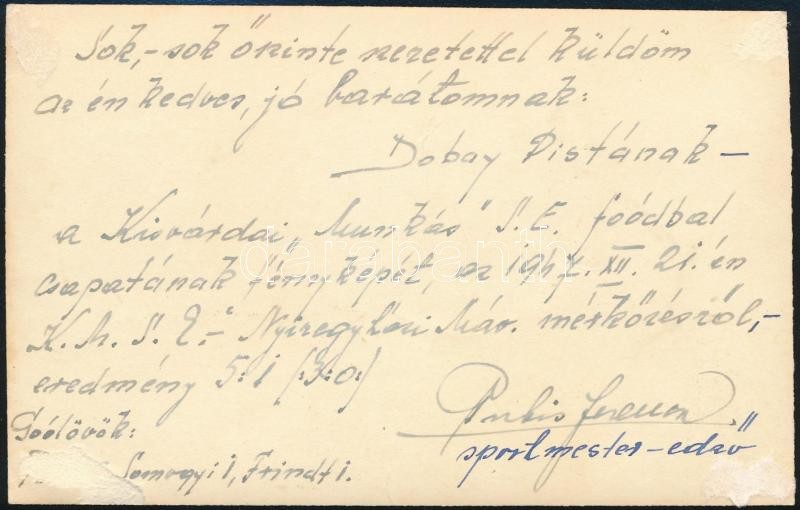 Sok,- sok őszinte szeretettel küldöm
az én kedves, jó barátomnak:
Dobay Pistának -
a Kisvárdai „Munkás" S. E. foódbal
csapatának fényképét, az 1947. XII. 21.-én
K. M. S. E. - Nyíregyházi Máv. mérkőzésről,-
eredmény 5:1 (:3:0:)
Ferenc
sportmester-edző
Góólövők:
Somogyi 1, Frindt 1.
darabanth